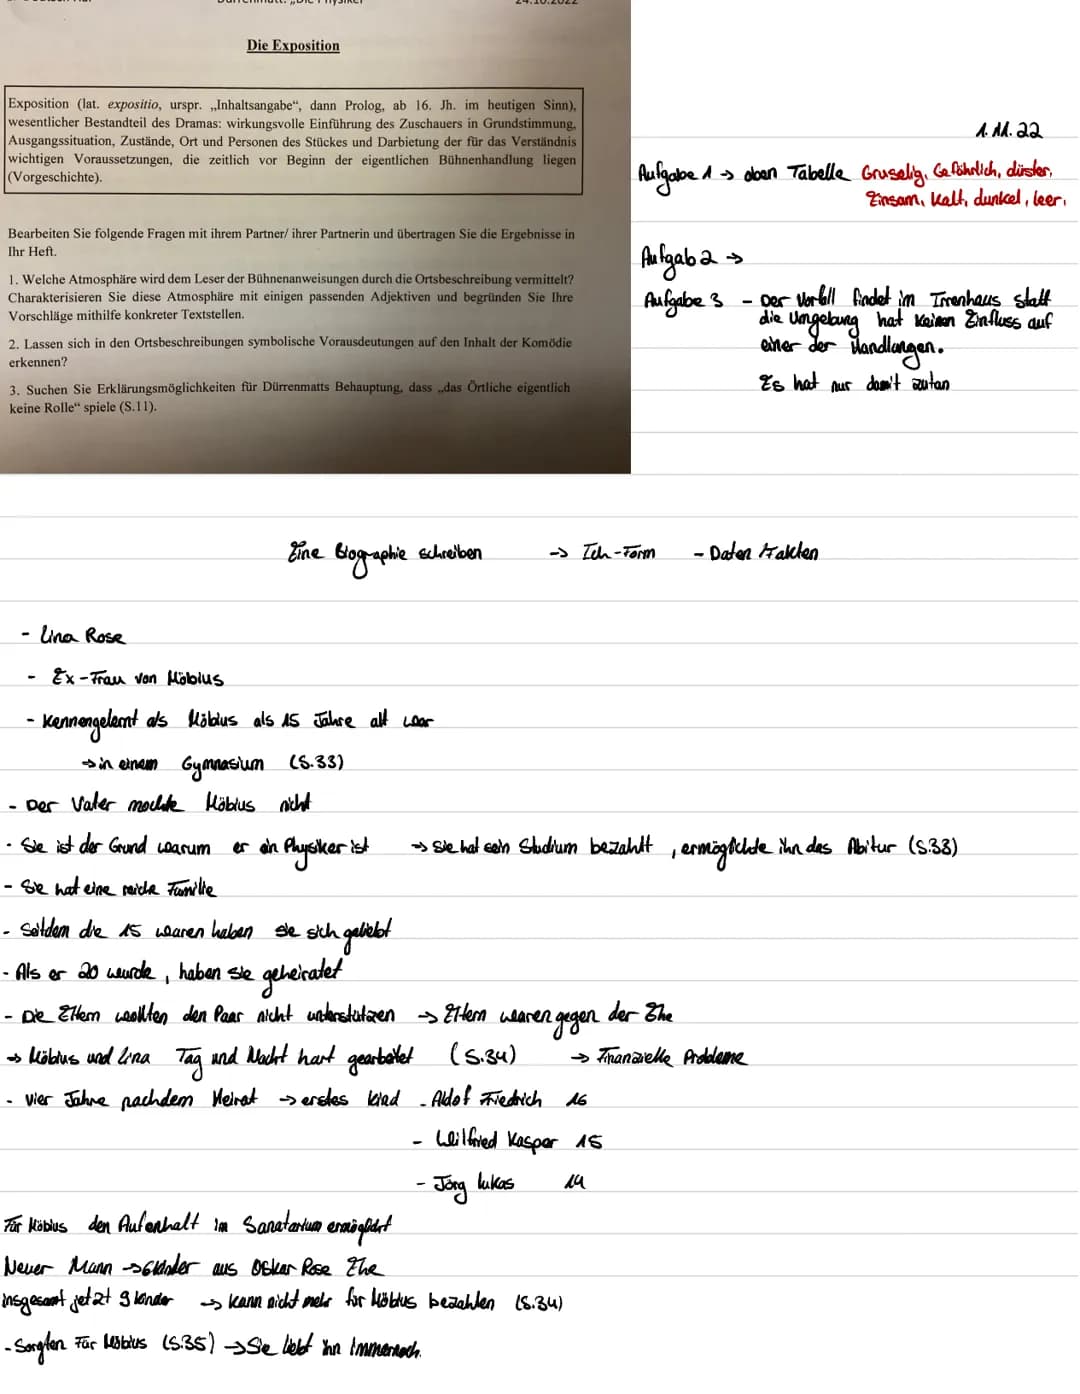 Die Exposition
Exposition (lat. expositio, urspr. „Inhaltsangabe“, dann Prolog, ab 16. Jh. im heutigen Sinn),
wesentlicher Bestandteil des Dramas: wirkungsvolle Einführung des Zuschauers in Grundstimmung,
Ausgangssituation, Zustände, Ort und Personen des Stückes und Darbietung der für das Verständnis
wichtigen Voraussetzungen, die zeitlich vor Beginn der eigentlichen Bühnenhandlung liegen
(Vorgeschichte).
Bearbeiten Sie folgende Fragen mit ihrem Partner/ ihrer Partnerin und übertragen Sie die Ergebnisse in
Ihr Heft.
1. Welche Atmosphäre wird dem Leser der Bühnenanweisungen durch die Ortsbeschreibung vermittelt?
Charakterisieren Sie diese Atmosphäre mit einigen passenden Adjektiven und begründen Sie Ihre
Vorschläge mithilfe konkreter Textstellen.
2. Lassen sich in den Ortsbeschreibungen symbolische Vorausdeutungen auf den Inhalt der Komödie
erkennen?
3. Suchen Sie Erklärungsmöglichkeiten für Dürrenmatts Behauptung, dass „das Örtliche eigentlich
keine Rolle“ spiele (S.11).
1.11.22
Aufgabe 1 → oben Tabelle Gruselig, Gefährlich, düster,
Einsam, kalt, dunkel, leer,
Aufgab 2 →
Aufgabe 3 - Der Vorfall findet im Irrenhaus statt
die Umgebung hat keinen Einfluss auf
einer der Handlungen.
Es hat nur damit zutan
Eine Biographie schreiben → Ich-Form - Daten Fakten
- Lina Rose
- Ex-Frau von Möbius
- Kennengelernt als Möbius als 15 Jahre alt war
→ in einem Gymnasium (S.33)
- Der Vater mochte Möbius nicht
- Sie ist der Grund warum er ein Physiker ist → Sie hat sein Studium bezahlt, ermöglichte ihn das Abitur (S.33)
- Sie hat eine reiche Familie
- Seitdem die 15 waren haben sie sich geliebt
- Als er 20 wurde, haben sie geheiratet
- Die Eltern wollten den Paar nicht unterstützen → Eltern waren gegen der Ehe
→ Möbius und Lina Tag und Nacht hart gearbeitet (S.34) → Finanzielle Probleme
- Vier Jahre nachdem Heirat → erstes Kind - Aldof Friedrich 16
- Wilfried Kaspar 15
- Jörg Lukas 14
Für Möbius den Aufenhalt im Sanatarium ermöglicht
Neuer Mann → 6 Kinder aus Oskar Rose Ehe
insgesamt jetzt 9 kinder → kann nicht mehr für Möbius bezahlen (S.34)
- Sorgten Für Möbius (S.35) → Sie liebt ihn immernoch.